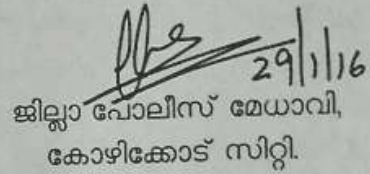 29/1/16
ജില്ലാ പോലീസ് മേധാവി,
കോഴിക്കോട് സിറ്റി.